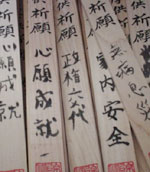 供祈願
心願成就
供祈願
心願成就
供祈願
政権交代
供祈願
家内安全
供祈願
無病息災